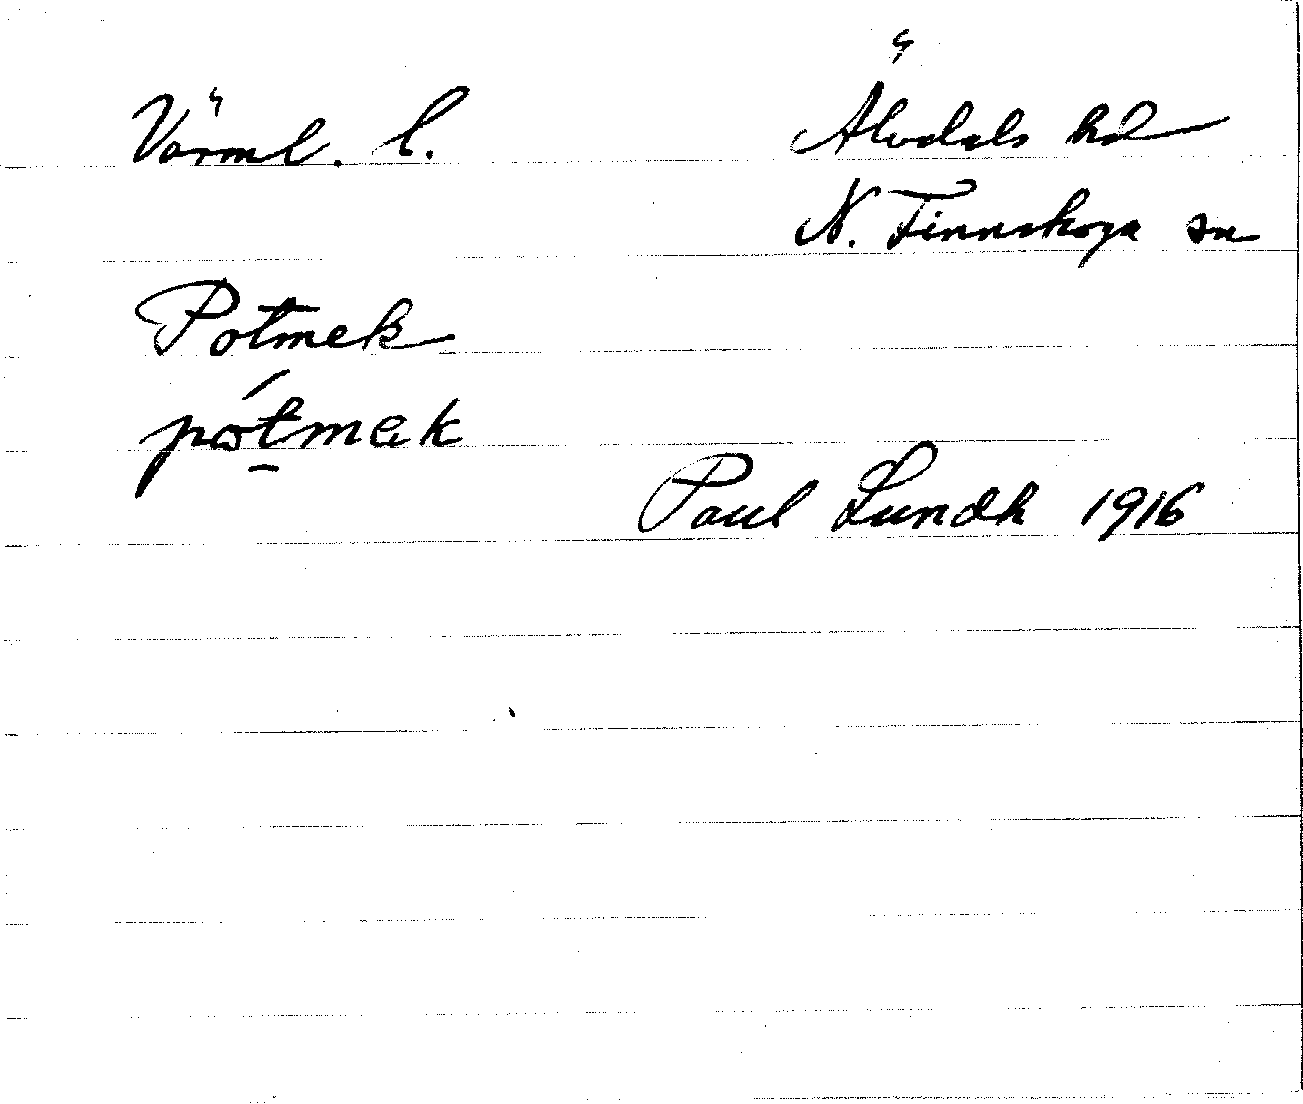 Värml. l.
Älvdals hd
N. Finnskoga sn
Potmek
pótmek
Paul Lundh 1916